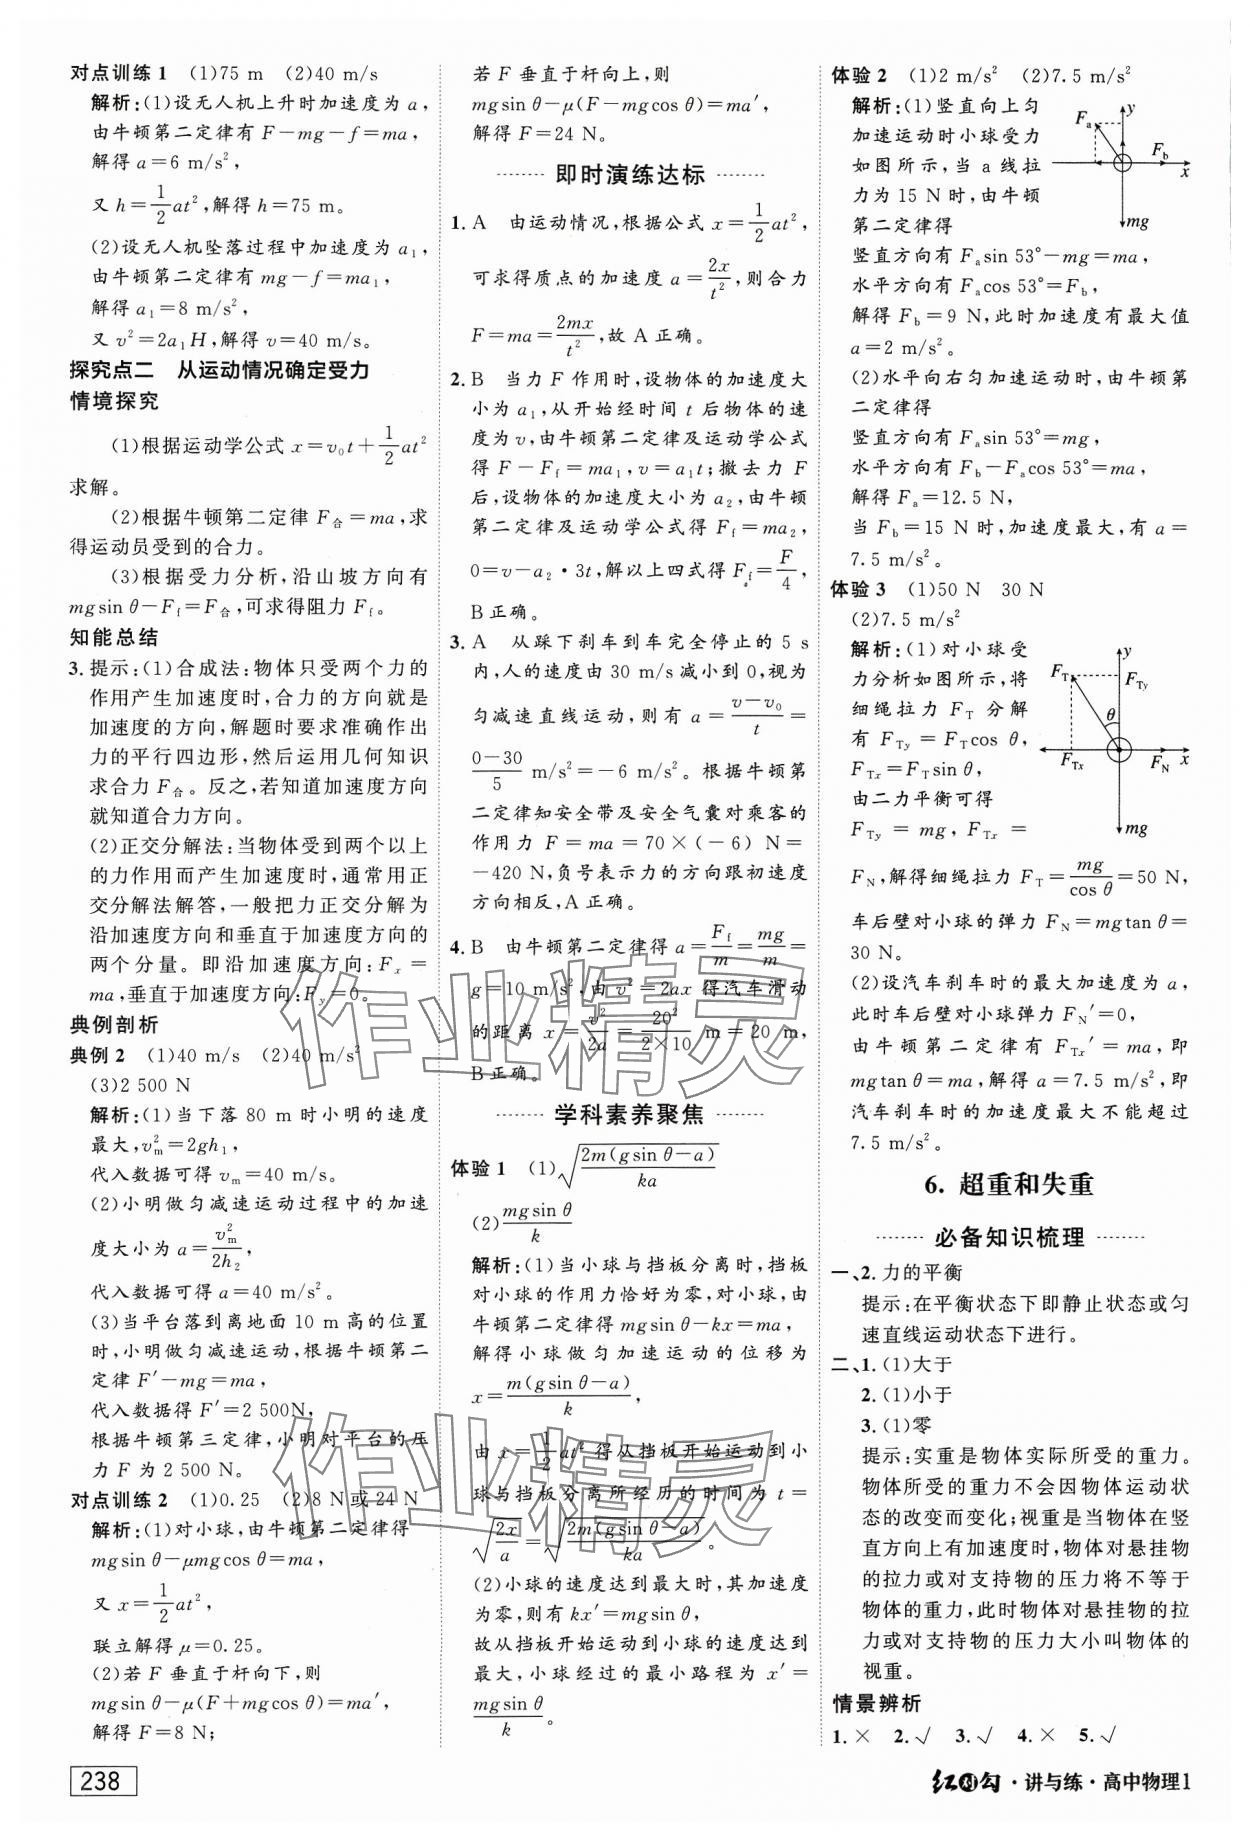 对点训练1 (1)75 m (2)40 m/s
解析:(1)设无人机上升时加速度为 a,
由牛顿第二定律有 F－mg－f＝ma,
解得 a＝6 m/s²,
又 h＝1/2at²,解得 h＝75 m。
(2)设无人机坠落过程中加速度为 a₁,
由牛顿第二定律有 mg－f＝ma₁,
解得 a₁＝8 m/s²,
又 v²＝2a₁H,解得 v＝40 m/s。
探究点二 从运动情况确定受力
情境探究
(1)根据运动学公式 x＝v₀t＋1/2at²
求解。
(2)根据牛顿第二定律 F合＝ma,求
得运动员受到的合力。
(3)根据受力分析,沿山坡方向有
mgsin θ－Ff＝F合,可求得阻力 Ff。
知能总结
3. 提示:(1)合成法:物体只受两个力的
作用产生加速度时,合力的方向就是
加速度的方向,解题时要求准确作出
力的平行四边形,然后运用几何知识
求合力 F合。反之,若知道加速度方向
就知道合力方向。
(2)正交分解法:当物体受到两个以上
的力作用而产生加速度时,通常用正
交分解法解答,一般把力正交分解为
沿加速度方向和垂直于加速度方向的
两个分量。即沿加速度方向:Fx＝
ma,垂直于加速度方向:Fy＝0。
典例剖析
典例2 (1)40 m/s (2)40 m/s²
(3)2 500 N
解析:(1)当下落 80 m 时小明的速度
最大,vm²＝2gh₁,
代入数据可得 vm＝40 m/s。
(2)小明做匀减速运动过程中的加速
度大小为 a＝vm²/2h₂,
代入数据可得 a＝40 m/s²。
(3)当平台落到离地面 10 m 高的位置
时,小明做匀减速运动,根据牛顿第二
定律 F′－mg＝ma,
代入数据得 F′＝2 500N,
根据牛顿第三定律,小明对平台的压
力 F 为 2 500 N。
对点训练2 (1)0.25 (2)8 N 或 24 N
解析:(1)对小球,由牛顿第二定律得
mgsin θ－μmgcos θ＝ma,
又 x＝1/2at²,
联立解得 μ＝0.25。
(2)若 F 垂直于杆向下,则
mgsin θ－μ(F＋mgcos θ)＝ma′,
解得 F＝8 N;
若 F 垂直于杆向上,则
mgsin θ－μ(F－mgcos θ)＝ma′,
解得 F＝24 N。
即时演练达标
1. A 由运动情况,根据公式 x＝1/2at²,
可求得质点的加速度 a＝2x/t²,则合力
F＝ma＝2mx/t²,故 A 正确。
2. B 当力 F 作用时,设物体的加速度大
小为 a₁,从开始经时间 t 后物体的速
度为 v,由牛顿第二定律及运动学公式
得 F－Ff＝ma₁,v＝a₁t;撤去力 F
后,设物体的加速度大小为 a₂,由牛顿
第二定律及运动学公式得 Ff＝ma₂,
0＝v－a₂・3t,解以上四式得 Ff＝F/4,
B 正确。
3. A 从踩下刹车到车完全停止的 5 s
内,人的速度由 30 m/s 减小到 0,视为
匀减速直线运动,则有 a＝(v－v₀)/t＝
(0－30)/5 m/s²＝－6 m/s²。根据牛顿第
二定律知安全带及安全气囊对乘客的
作用力 F＝ma＝70×(－6) N＝
－420 N,负号表示力的方向跟初速度
方向相反,A 正确。
4. B 由牛顿第二定律得 a＝Ff/m＝mg/m＝
g＝10 m/s²,由 v²＝2ax 得汽车滑动
的距离 x＝v²/2a＝20²/(2×10) m＝20 m,
B 正确。
学科素养聚焦
体验1 (1)√(2m(gsin θ－a)/ka)
(2)mgsin θ/k
解析:(1)当小球与挡板分离时,挡板
对小球的作用力恰好为零,对小球,由
牛顿第二定律得 mgsin θ－kx＝ma,
解得小球做匀加速运动的位移为
x＝m(gsin θ－a)/k,
由 x＝1/2at² 得从挡板开始运动到小
球与挡板分离所经历的时间为 t＝
√(2x/a)＝√(2m(gsin θ－a)/ka)。
(2)小球的速度达到最大时,其加速度
为零,则有 kx′＝mgsin θ,
故从挡板开始运动到小球的速度达到
最大,小球经过的最小路程为 x′＝
mgsin θ/k。
体验2 (1)2 m/s² (2)7.5 m/s²
解析:(1)竖直向上匀
加速运动时小球受力
如图所示,当 a 线拉
力为 15 N 时,由牛顿
第二定律得
y
Fa
Fb
x
mg
竖直方向有 Fasin 53°－mg＝ma,
水平方向有 Facos 53°＝Fb,
解得 Fb＝9 N,此时加速度有最大值
a＝2 m/s²。
(2)水平向右匀加速运动时,由牛顿第
二定律得
竖直方向有 Fasin 53°＝mg,
水平方向有 Fb－Facos 53°＝ma,
解得 Fa＝12.5 N,
当 Fb＝15 N 时,加速度最大,有 a＝
7.5 m/s²。
体验3 (1)50 N 30 N
(2)7.5 m/s²
解析:(1)对小球受
力分析如图所示,将
细绳拉力 FT 分解
有 FTy＝FTcos θ,
FTx＝FTsin θ,
由二力平衡可得
FTy＝mg,FTx＝
y
FT
FTy
θ
FTx
FN
x
mg
FN,解得细绳拉力 FT＝mg/cos θ＝50 N,
车后壁对小球的弹力 FN＝mgtan θ＝
30 N。
(2)设汽车刹车时的最大加速度为 a,
此时车后壁对小球弹力 FN′＝0,
由牛顿第二定律有 FTx′＝ma,即
mgtan θ＝ma,解得 a＝7.5 m/s²,即
汽车刹车时的加速度最大不能超过
7.5 m/s²。
6. 超重和失重
必备知识梳理
一、2. 力的平衡
提示:在平衡状态下即静止状态或匀
速直线运动状态下进行。
二、1. (1)大于
2. (1)小于
3. (1)零
提示:实重是物体实际所受的重力。
物体所受的重力不会因物体运动状
态的改变而变化;视重是当物体在竖
直方向上有加速度时,物体对悬挂物
的拉力或对支持物的压力将不等于
物体的重力,此时物体对悬挂物的拉
力或对支持物的压力大小叫物体的
视重。
情景辨析
1. × 2. √ 3. √ 4. × 5. √
238
红对勾・讲与练・高中物理1
作业精灵
作业精灵